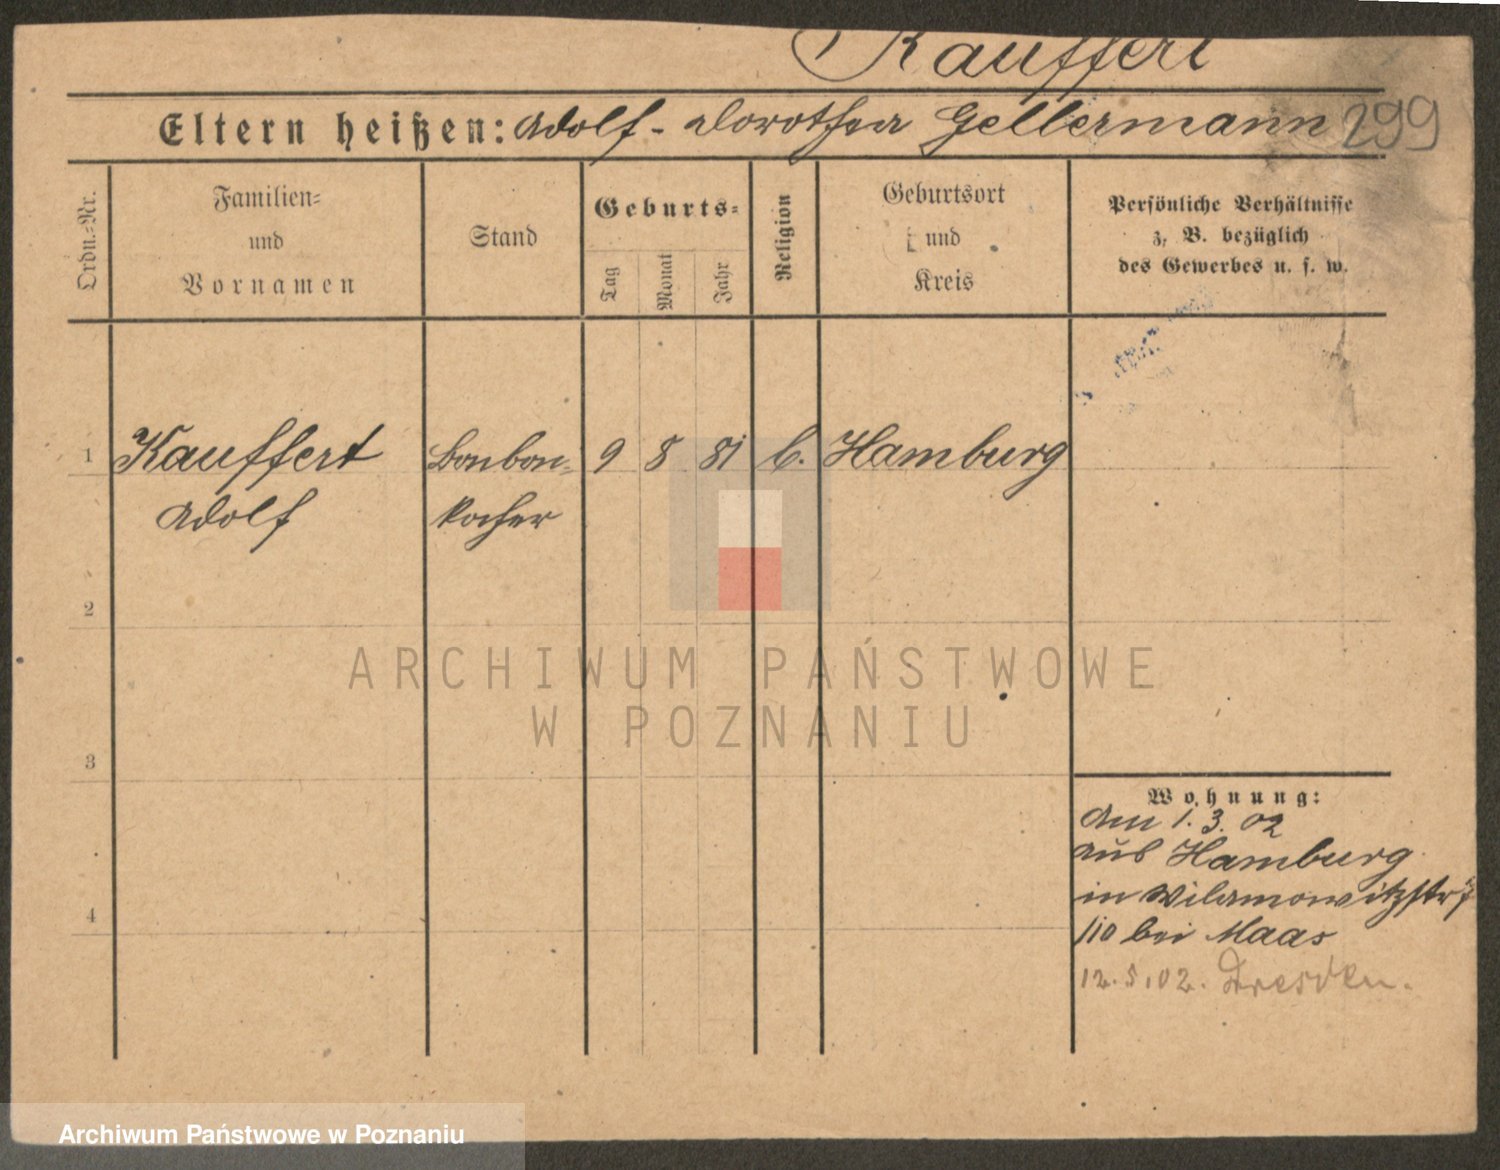 Kauffert
Eltern heißen: Adolf - Dorothea Gellermann 299
Ordn.-Nr.
Familien-
und
Vornamen
Stand
Geburts-
Tag
Monat
Jahr
Religion
Geburtsort
und
Kreis
Persönliche Verhältnisse
z. B. bezüglich
des Gewerbes u. s. w.
1 Kauffert Bonbon- 9 8 81 l. Hamburg
Adolf kocher
2
ARCHIWUM PAŃSTWOWE
W POZNANIU
3
Wohnung:
Am 1.3.02
aus Hamburg
in Wilamowitzstr
110 bei Maas
12.5.02. Dresden.
4
Archiwum Państwowe w Poznaniu